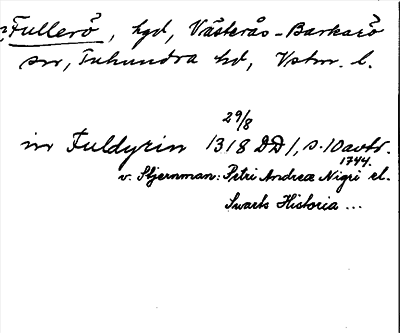 Fullerö, hgd, Västerås-Barkarö
sn, Tuhundra hd, Vstm. l.
29/8
in Fuldyrin 1318 DD1, s. 10 avtr.
1744.
v. Stjernman: Petri Andreæ Nigri el.
Swarts Historia ...